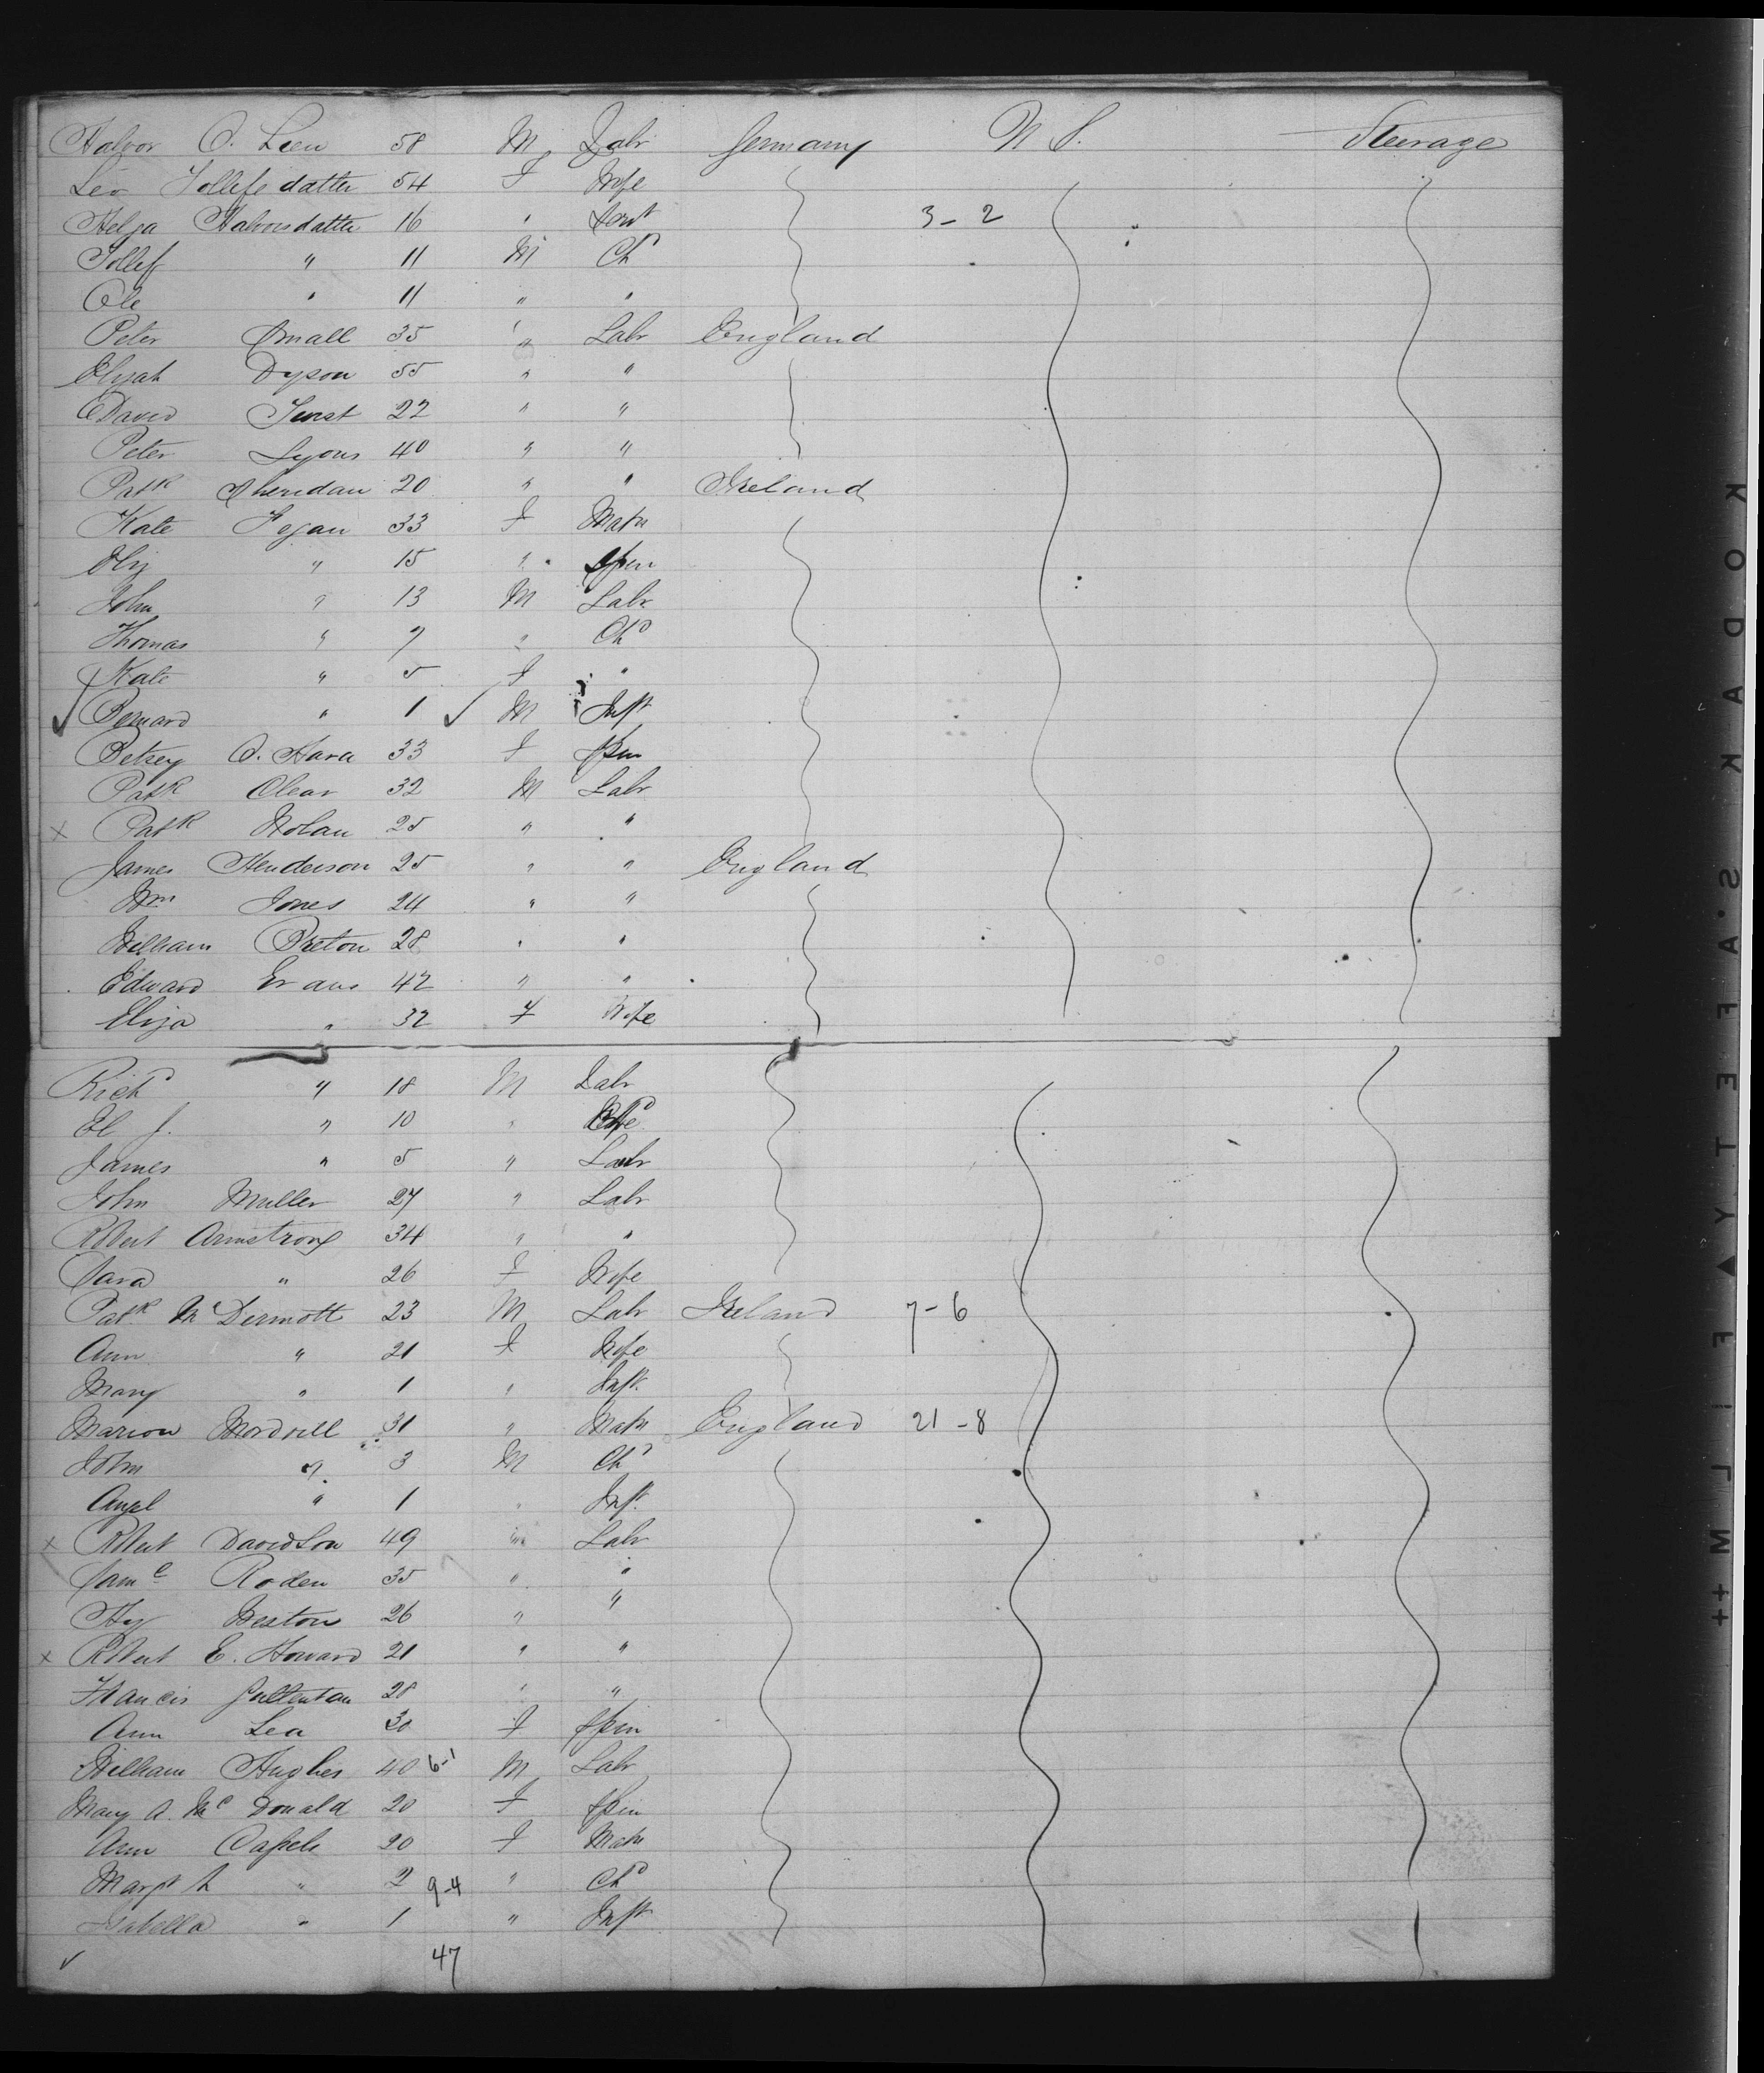 Halvor O. Lien 58 M Labr Germany U S. Steerage
Liv Tollefsdatter 54 F Wife
Helga Halvorsdatter 16 " Servt 3 - 2
Tollef " 11 M Chd
Ole " 11 " "
Peter Small 35 " Labr England
Elijah Dyson 55 " "
David 22 " "
Peter Lyons 40 " "
Patk Sheridan 20 " " Ireland
Kate Fegan 33 F Matn
Eliz " 15 " Spin
John " 13 M Labr
Thomas " 7 " Chd
Kate " 5 F "
✓ Bernard " 1 ✓ M Inft
Betsey O. Hara 33 F Spin
Patk Clear 32 M Labr
x Patk Nolan 25 " "
James Henderson 25 " " England
Wm Jones 24 " "
William Breton 28 " "
Edward Evans 42 " "
Eliza " 32 F Wife
Richd " 18 M Labr
El J. " 10 "
James " 5 " Labr
John Muller 27 " Labr
Robert Armstrong 34 " "
Sara " 26 F Wife
Patk McDermott 23 M Labr Ireland 7-6
Ann " 21 F Wife
Mary " 1 " Inft
Marion 31 " Matn England 21-8
John " 3 M Chd
Angl " 1 " Inft
x Robert Davidson 49 " Labr
Saml Roden 35 " "
Hy Weston 26 " "
x Robert E. Howard 21 " "
Francis 28 " "
Ann Lea 30 F Spin
William Hughes 40 6-1 M Labr
Mary A. McDonald 20 F Spin
Ann Cassels 20 F Matn
Margt A " 2 9-4 " Chd
Isabella " 1 " Inft
✓ 47
KODAK S.A.FETY ▲ FILM ++